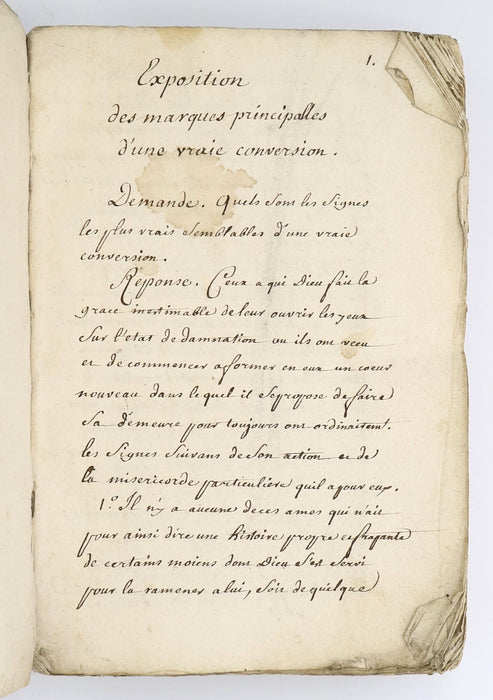 1.
Exposition
des marques principalles
d'une vraie conversion.
Demande. Quels sont les signes
les plus vrais semblables d'une vraie
conversion.
Reponse. Ceux a qui Dieu fait la
grace inestimable de leur ouvrir les yeux
sur l'etat de damnation ou ils ont vecu
et de commencer a former en eux un coeur
nouveau dans le quel il se propose de faire
sa demeure pour toujours ont ordinairemt.
les signes suivans de son action et de
la misericorde particuliere quil a pour eux.
1.° Il n'y a aucune de ces ames qui n'ait
pour ainsi dire une histoire propre et
de certains moiens dont Dieu s'est servi
pour la ramener a lui, soit de quelque